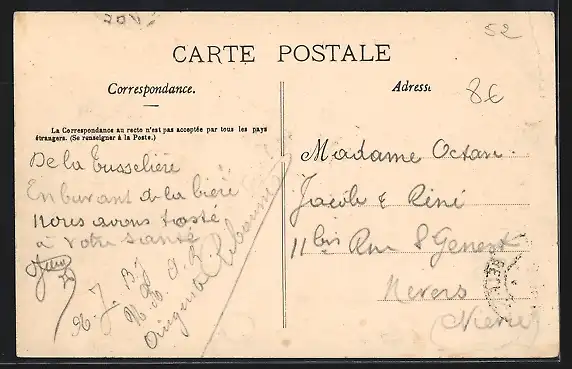 52
CARTE POSTALE
Correspondance.
Adresse
8€
La Correspondance au recto n'est pas acceptée par tous les pays
étrangers. (Se renseigner à la Poste.)
De la Tusselière
En buvant de la bière
nous avons trosté
à votre santé
Madame Octav.
Jacob & Réné
11 bis Rue St Genest
Nevers
(Nièvre)
Auguste